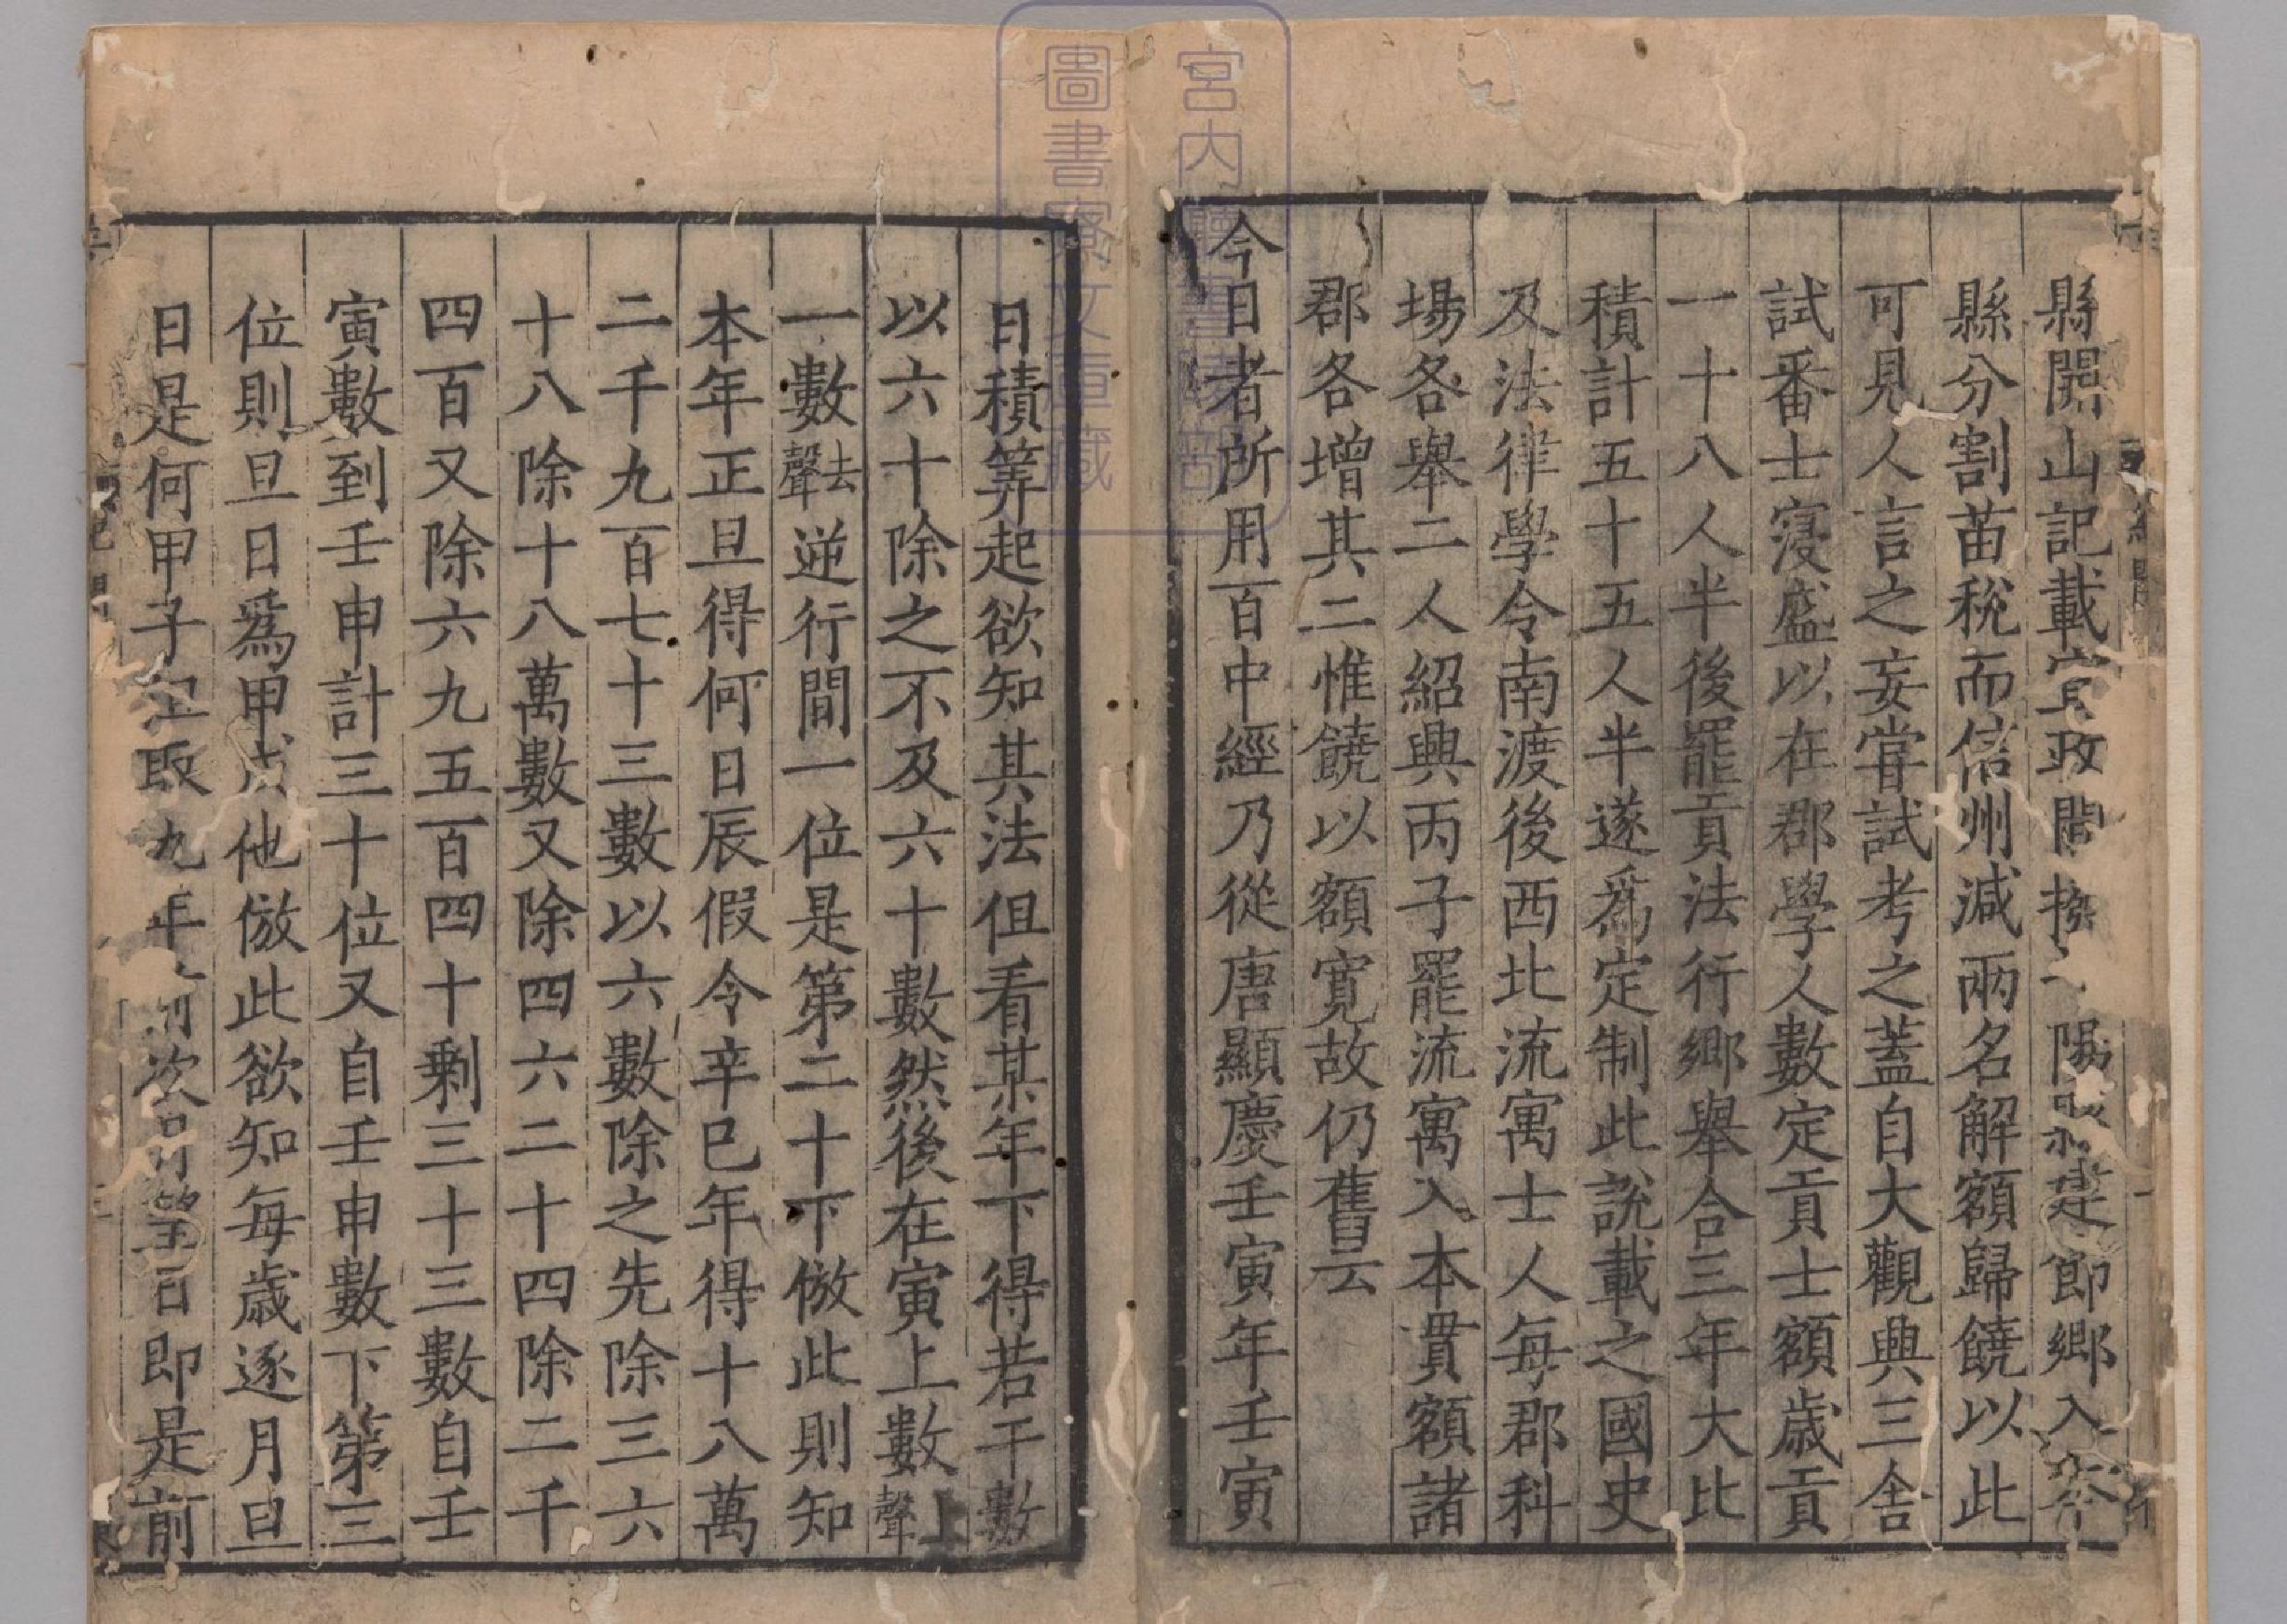 縣開山記載宣政間撥陽建節鄉入
縣分割苗稅而信州減兩名解額歸饒以此
可見人言之妄甞試考之蓋自大觀興三舍
試番士寖盛以在郡學人數定貢士額歲貢
一十八人半後罷貢法行鄉舉合三年大比
積計五十五人半遂爲定制此說載之國史
及法律學令南渡後西北流寓士人每郡科
場各舉二人紹興丙子罷流寓入本貫額諸
郡各增其二惟饒以額寬故仍舊云
今日者所用百中經乃從唐顯慶壬寅年壬寅
日積筭起欲知其法但看某年下得若干數
以六十除之不及六十數然後在寅上數上聲
一數去聲逆行間一位是第二十下倣此則知
本年正旦得何日辰假令辛巳年得十八萬
二千九百七十三數以六數除之先除三六
十八除十八萬數又除四六二十四除二千
四百又除六九五百四十剩三十三數自壬
寅數到壬申計三十位又自壬申數下第三
位則旦日爲甲戌他倣此欲知每歲逐月旦
日是何甲子只取九年前次望日即是前
宮內廳書陵部
圖書寮文庫藏